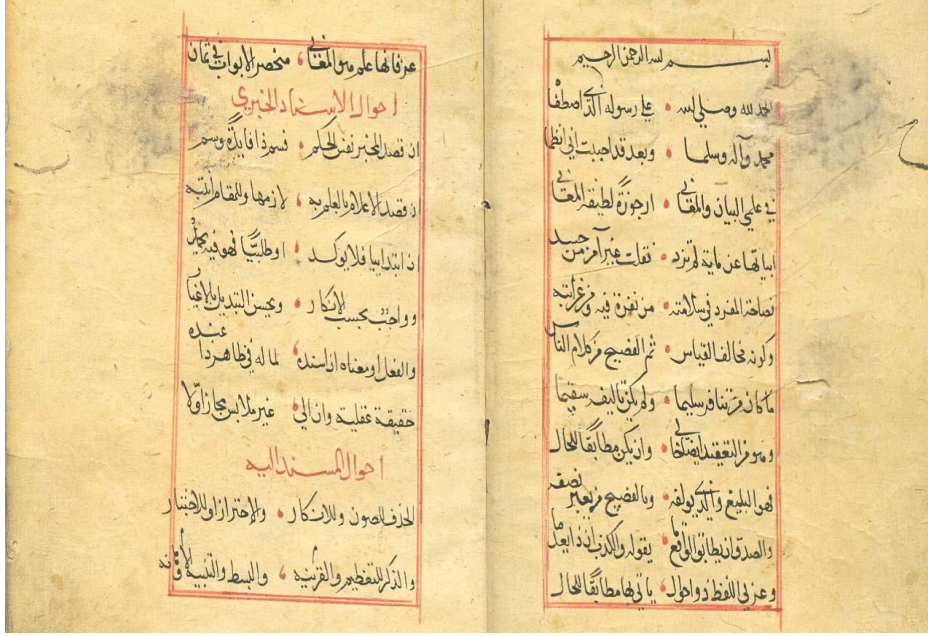 بسم الله الرحمن الرحيم
الحمد لله وصلي الله • علي رسوله الذي اصطفاه
محمد وآله وسلما • وبعد قد احببت اني انظما
في علمي البيان والمعاني • ارجوزة لطيفة المعاني
ابياتها عن ماية لم تزد • فقلت غير آمن من حسد
فصاحة المفرد في سلامته • من نفرة فيه ومن غرابته
وكونه مخالف القياس • ثم الفصيح من كلام الناس
ما كان من تنافر سليما • ولم يكن تاليفه سقيما
وهو من التعقيد ايضا خالي • وان يكن مطابقا للحال
فهو البليغ والذي يولفه • وبالفصيح من يعبر نصفه
والصدق ان يطابق الواقع ما • يقوله والكذب ان ذا يعدما
وعربي اللفظ ذو احوال • ياتي بها مطابقا للحال
عرفانها علم هو المعاني • منحصر الابواب في ثمان
احوال الاسناد الخبري
ان قصد المخبر نفس الحكم • فسم ذا فايدة وسم
ان قصد الاعلام بالعلم به • لازمها وللمقام انتبه
ان ابتدايا فلا يوكد • او طلبيا فهو فيه يحمد
وواجب بحسب الانكار • ويحسن التبديل بالاغيار
والفعل او معناه ان اسنده • لما له في ظاهر ذا عنده
حقيقة عقلية وان الي • غير ملابس مجاز اولا
احوال المسند اليه
الحذف للصون وللانكار • والاحتراز او للاختبار
والذكر للتعظيم والقرينه • والبسط والتنبيه